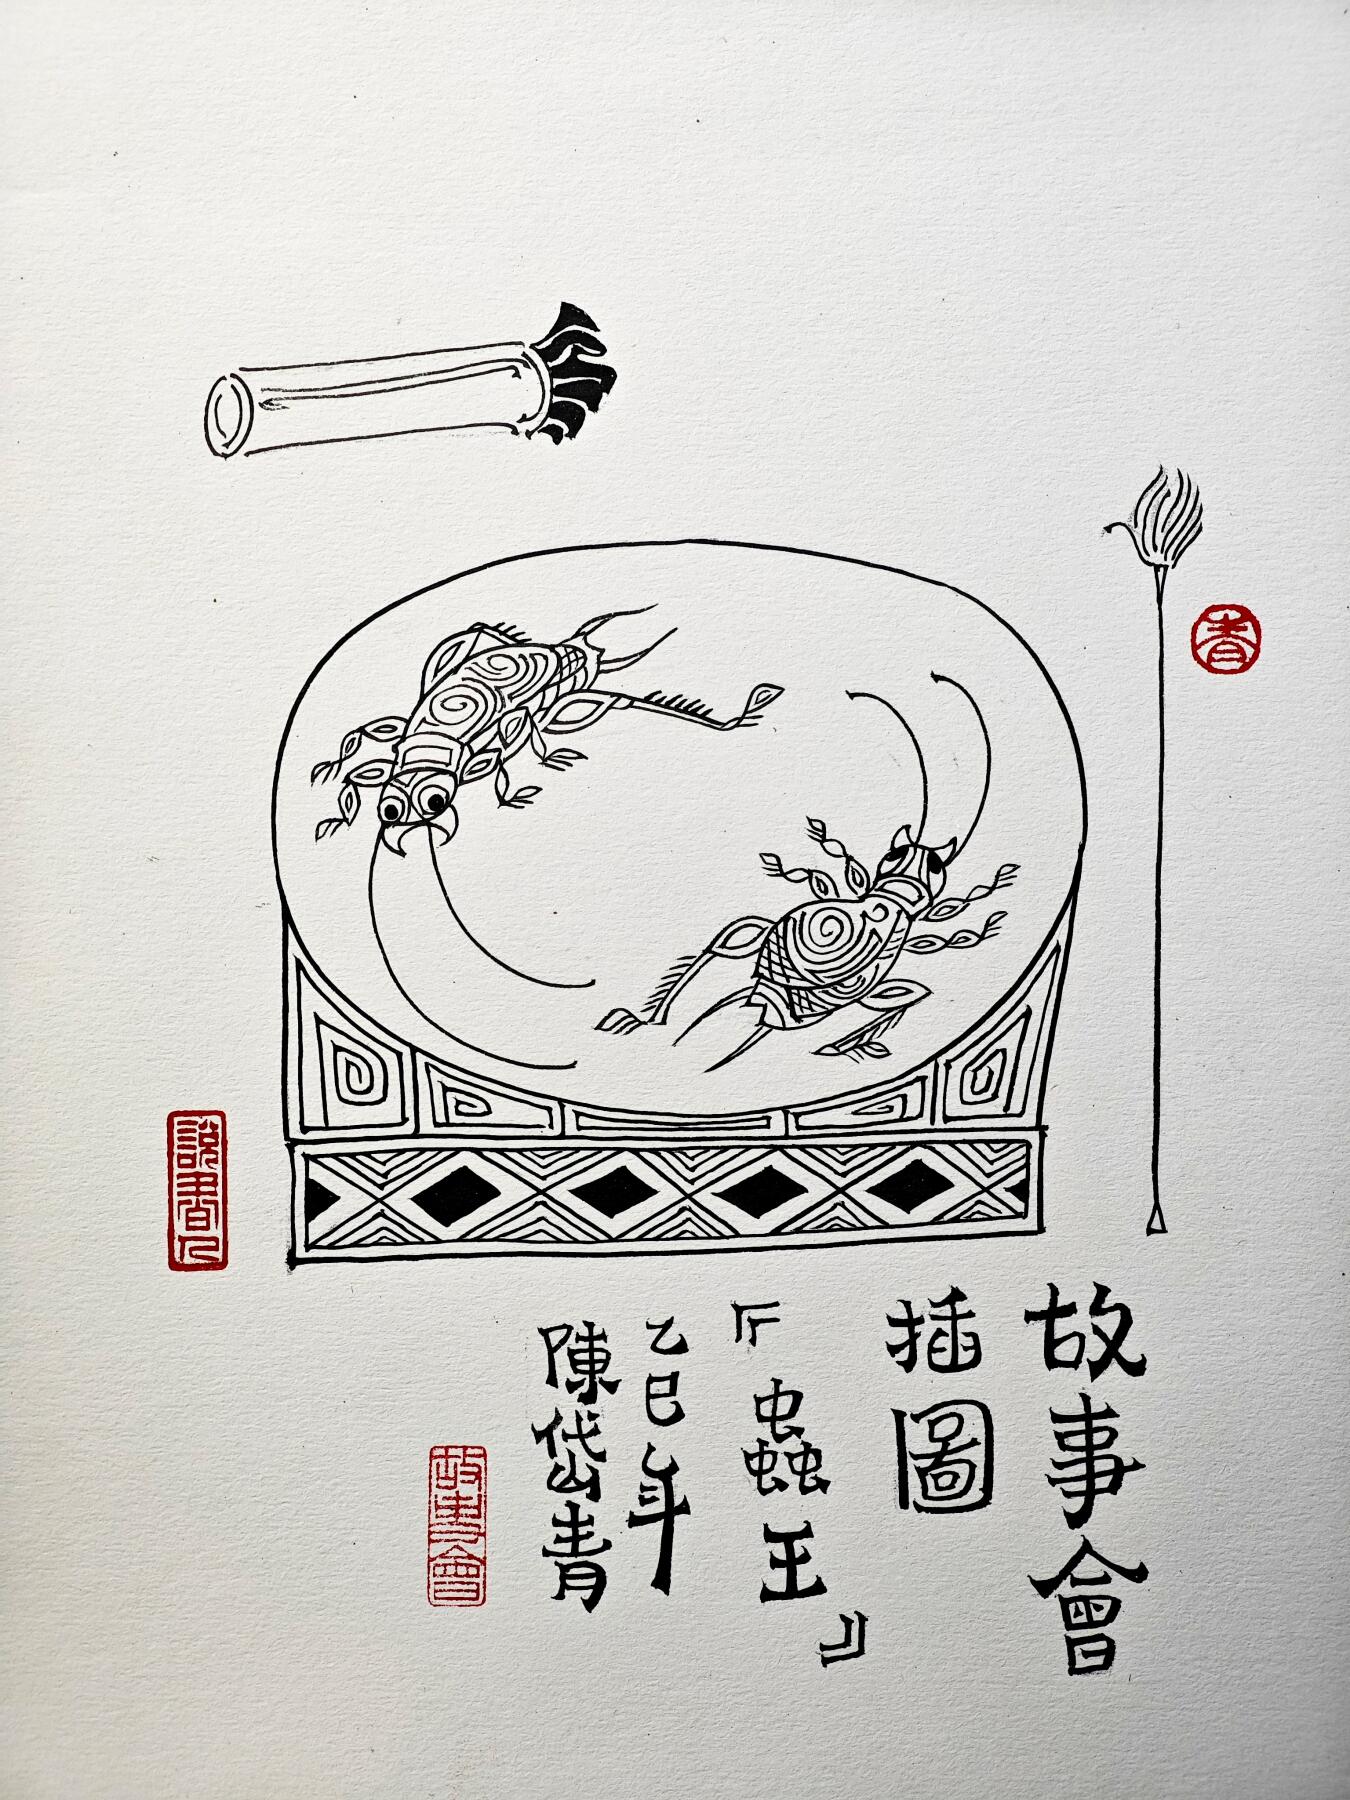 故事會
插圖
『蟲王』
乙巳年
陳岱青
故事會
說書人